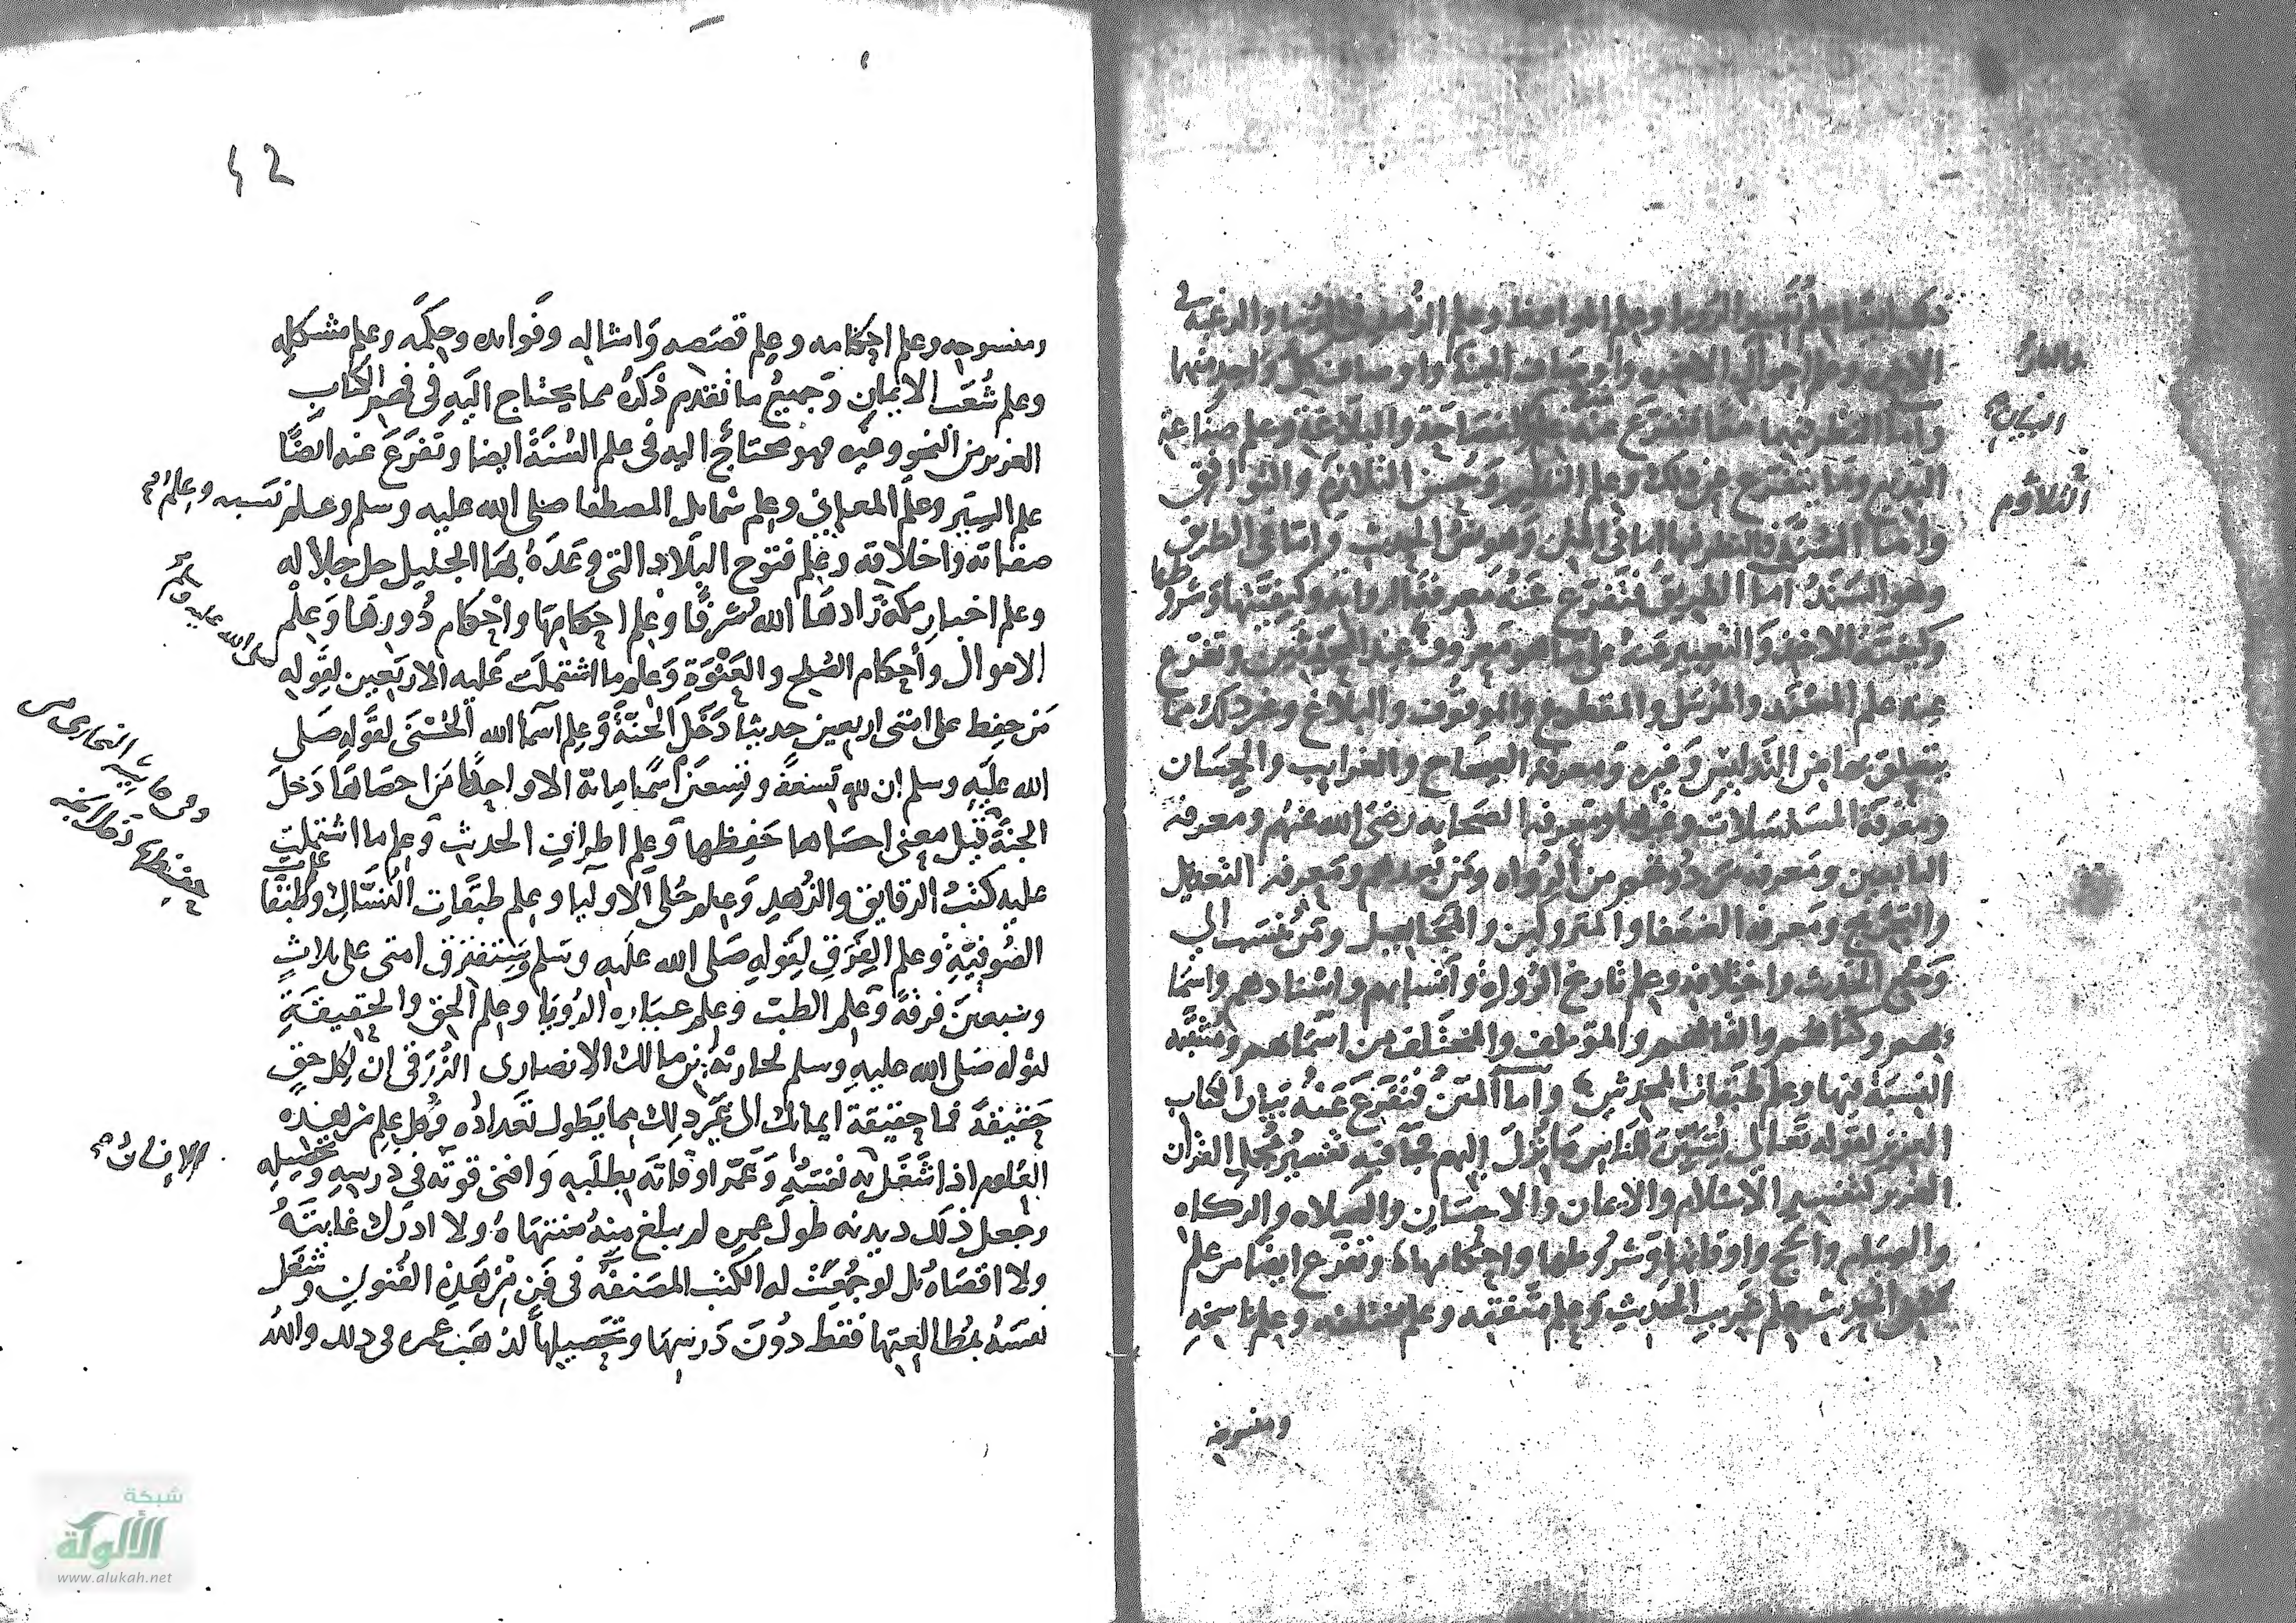 وعلم المواعظ وعلم الزهد والرغبة في
الاخرى وعلم احوال الاخره واوصاف الجنة واوصاف كل واحد منها
واما النظر فيهما مما تفرع عنه علم الفصاحة والبلاغة وعلم صناعة
البديع وما يتفرع من ذلك وعلم النظير وحسن التلازم والتوافق
واما السُّنَّة فالنظر فيها اما في المتن وهو نص الحديث واما في الطرق
وهو السَّنَدُ اما الطريق فتفرع عنه معرفة الرواية وكيفيتها وشروطها
وكيفية الاخذ والتعبير عنه على ما هو معروف عند المحدثين وتفرع
عنه علم المسند والمرسل والمقطوع والموقوف والبلاغ وغير ذلك مما
يتعلق بها من التدليس وغيره ومعرفة الصحاح والغرايب والحسان
ومعرفة المسلسلات وغيرها ومعرفة الصحابه رضى الله عنهم ومعرفة
التابعين ومعرفة من دونهم من الرواه ومن بعدهم ومعرفه التعديل
والتجريح ومعرفه الضعفا والمتروكين والمجاهيل ومن نسب الى
وضع الحديث واختلافه وعلم تاريخ الرواة وانسابهم واسنادهم واسما
يهم وكناهم والقابهم والموتلف والمختلف من اسمايهم ومشتبه
النسبة فيها وعلم طبقات المحدثين واما المتن فتفرع عنه بيان الكتاب
العزيز لقوله تعالى لِتُبَيِّنَ للناس ما نُزِّلَ اليهم فيه تفسير مجمل القران
العزيز كتفسير الاسلام والايمان والاحسان والصلاه والزكاه
والصيام والحج واوقاتها وشروطها واحكامها وتفرع ايضا من علم
الحديث علم غريب الحديث وعلم متفقه وعلم مختلفه وعلم ناسخه
البيان
التلاوم
ومنسوخه
42
ومنسوخه وعلم احكامه وعلم قصصه وامثاله وفوايده وحِكَمه وعلم مشكله
وعلم شُعَب الايمان وجميعُ ما تقدم ذكرُه مما يحتاج اليه في فهم الكتاب
العزيز من النحو وغيره فهو محتاج اليه في علم السُّنَة ايضا وتفرع عنه ايضًا
علم السِيَر وعلم المغازي وعلم شمايل المصطفا صلى الله عليه وسلم وعلم نسبه وعلم
صفاته واخلاقه وعلم فتوح البلاد التى وعَدَهُ بها الجليل جل جلاله
وعلم اخبار مكة زادها الله شرفًا وعلم احكامها واحكام دورها وعلم
الاموال واحكام الصُلح والعَنْوَةِ وعلم ما اشتملت عليه الاربعين لقوله
صلى الله عليه وسلم
مَن حفظ على امتى اربعين حديثا دخل الجنة وعلم اسما الله الحُسْنَى لقوله صلى
الله عليه وسلم ان لله تسعة وتسعين اسمًا ماية الا واحدًا من احصاها دَخَلَ
الجنة قيل معنى احصاها حفظها وعلم اطراف الحديث وعلم ما اشتملت
عليه كتبُ الرقايق والزُهدِ وعلم حُلى الاوليا وعلم طبقات النُسَّاك وطبقات
الصُوفيَّةِ وعلم الفِرَق لقوله صلى الله عليه وسلم وستفترق امتى على ثلاثٍ
وسبعين فرقة وعلم الطب وعلم عباره الرُويا وعلم الحق والحقيقة
لقوله صلى الله عليه وسلم لحارثة بن مالك الانصارى الزُرَقى ان لكل حقٍ
حقيقة فما حقيقة ايمانك الى غير ذلك مما يطول تعداده وكل علم من هذه
العلوم اذا شغل به نفسَهُ وعَمَّر اوقاته بطلبه وافنى قوته في درسه وتحصيله
وجعل ذلك ديدنه طول عمره لم يبلغ منه منتهاهُ ولا ادرك غايتَهُ
ولا اقصاهُ بل لو جُمِعَتْ له الكتب المصنفة في فَنٍ مِنْ هذه الفُنونِ وشغل
نفسَهُ بمُطالعتها فقط دُونَ دَرسها وتحصيلها لذهب عمره في ذلك والله
الانسان
شبكة
الألوكة
www.alukah.net